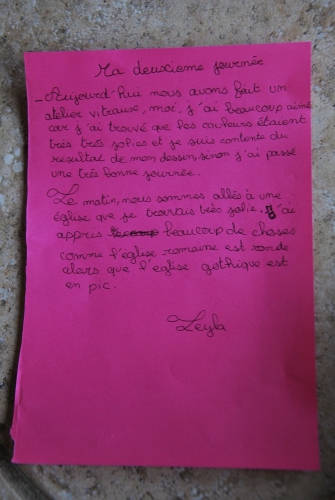 Ma deuxiome journée
- Aujourd'hui nous avons fait un
atelier vitraux, moi, j'ai beaucoup aimé
car j'ai trouvé que les couleurs étaient
très très jolies et je suis contente du
resultat de mon dessin, sinon j'ai passé
une très bonne journée.
Le matin, nous sommes allés à une
église que je trouvais très jolie, j'ai
appris beaucoup de choses
comme l'église romaine est ronde
alors que l'église gothique est
en pic.
Leyla